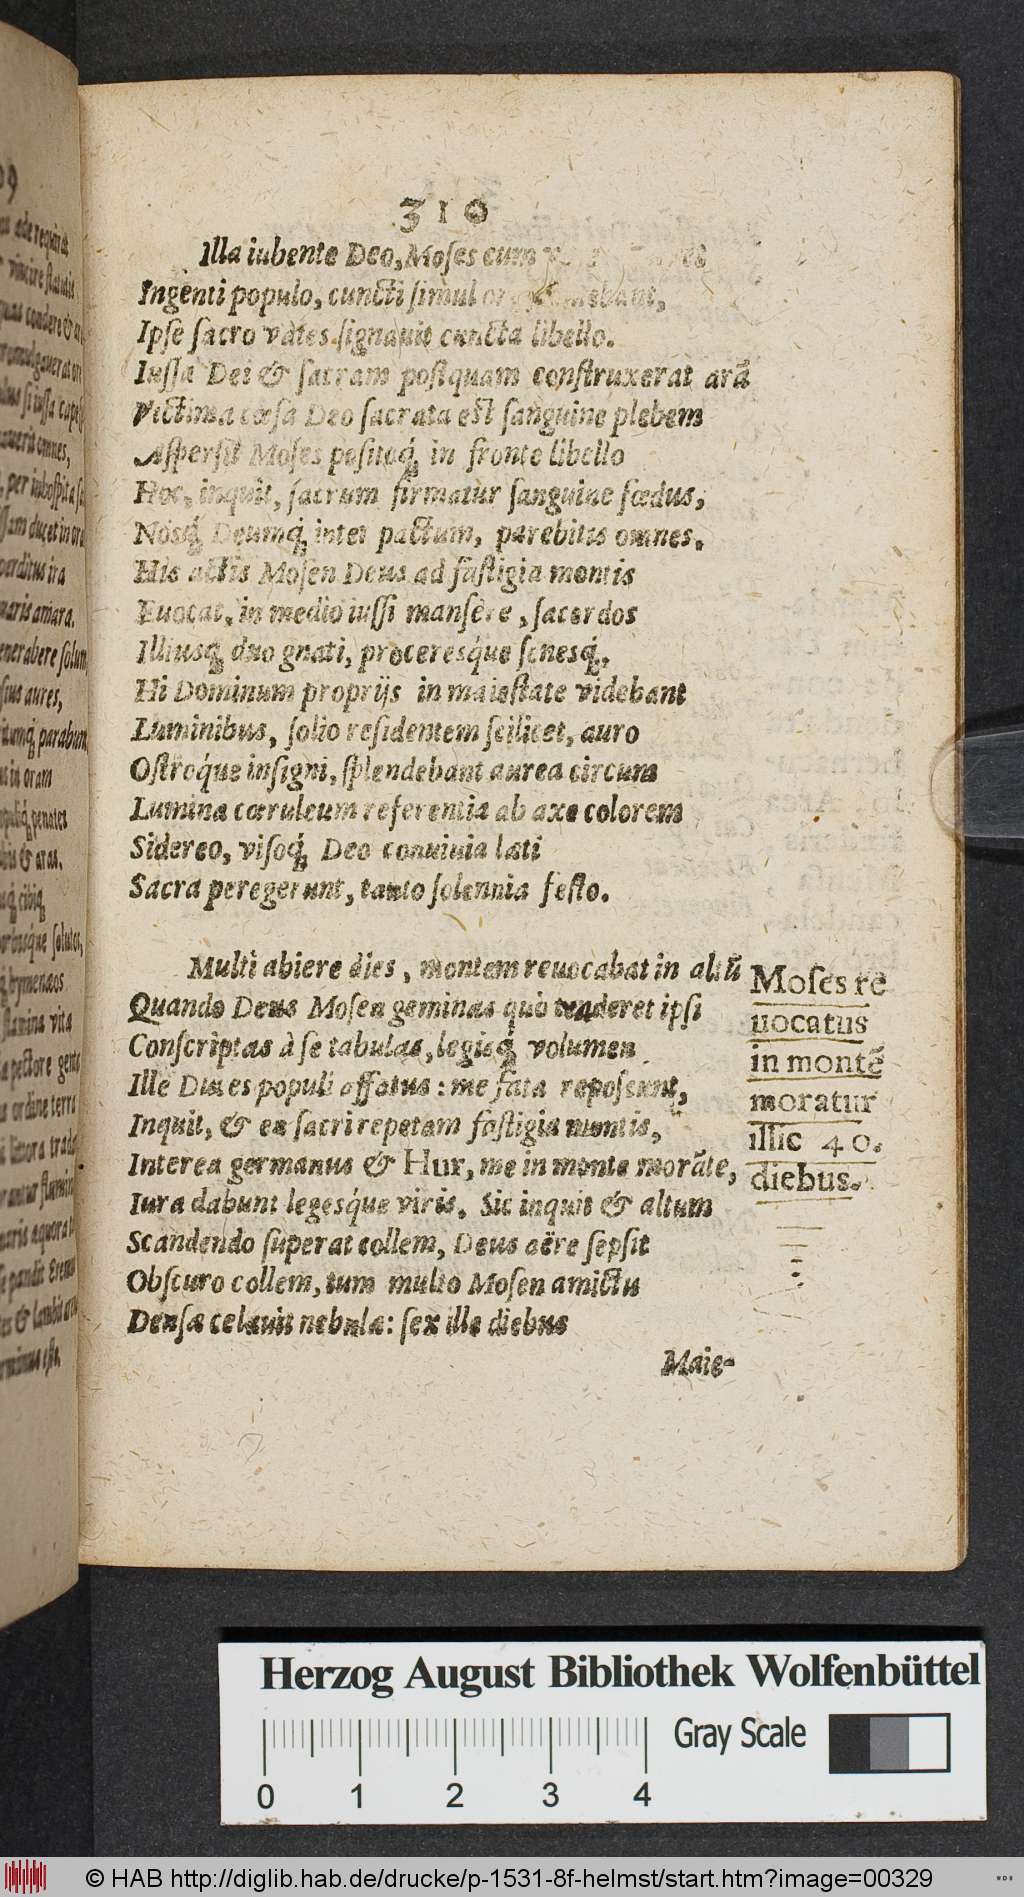 310
Illa iubente Deo, Moses cum
Ingenti populo, cuncti simul
Ipse sacro vates signauit cuncta libello.
Iussa Dei & sacram postquam construxerat arā
Victima cæsa Deo sacrata est sanguine plebem
Aspersit Moses positoq́; in fronte libello
Hoc, inquit, sacrum firmatur sanguine fœdus,
Nosq́; Deumq́; inter pactum, parebitis omnes.
His actis Mosen Deus ad fastigia montis
Euocat, in medio iussi mansêre, sacerdos
Illiusq́; duo gnati, proceresq́ue senesq́;.
Hi Dominum proprijs in maiestate videbant
Luminibus, solio residentem scilicet, auro
Ostroq́ue insigni, splendebant aurea circum
Lumina cœruleum referentia ab axe colorem
Sidereo, visoq́; Deo conuiuia læti
Sacra peregerunt, tanto solennia festo.
Multi abiere dies, montem reuocabat in altū
Quando Deus Mosen geminas quò tenderet ipsi
Conscriptas à se tabulas, legisq́; volumen
Ille Duces populi affatus: me fata reposcunt,
Inquit, & en sacri repetam fastigia montis,
Interea germanus & Hur, me in monte morāte,
Iura dabunt legesq́ue viris. Sic inquit & altum
Scandendo superat collem, Deus aëre sepsit
Obscuro collem, tum multo Mosen amictu
Densæ celauit nebulæ: sex ille diebus
Maie-
Moses re
uocatus
in montē
moratur
illic 40.
diebus.
Herzog August Bibliothek Wolfenbüttel
Gray Scale
0 1 2 3 4
© HAB http://diglib.hab.de/drucke/p-1531-8f-helmst/start.htm?image=00329